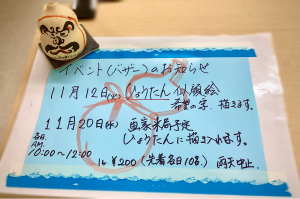 イベント(バザー)のお知らせ
11月12日(火) ひょうたん似顔絵
希望の字、描きます。
11月20日(水) 画家来局予定
ひょうたんに描き入れます。
各日
AM.
10:00~12:00
1ヶ ¥200 (先着各日10名) 雨天中止.